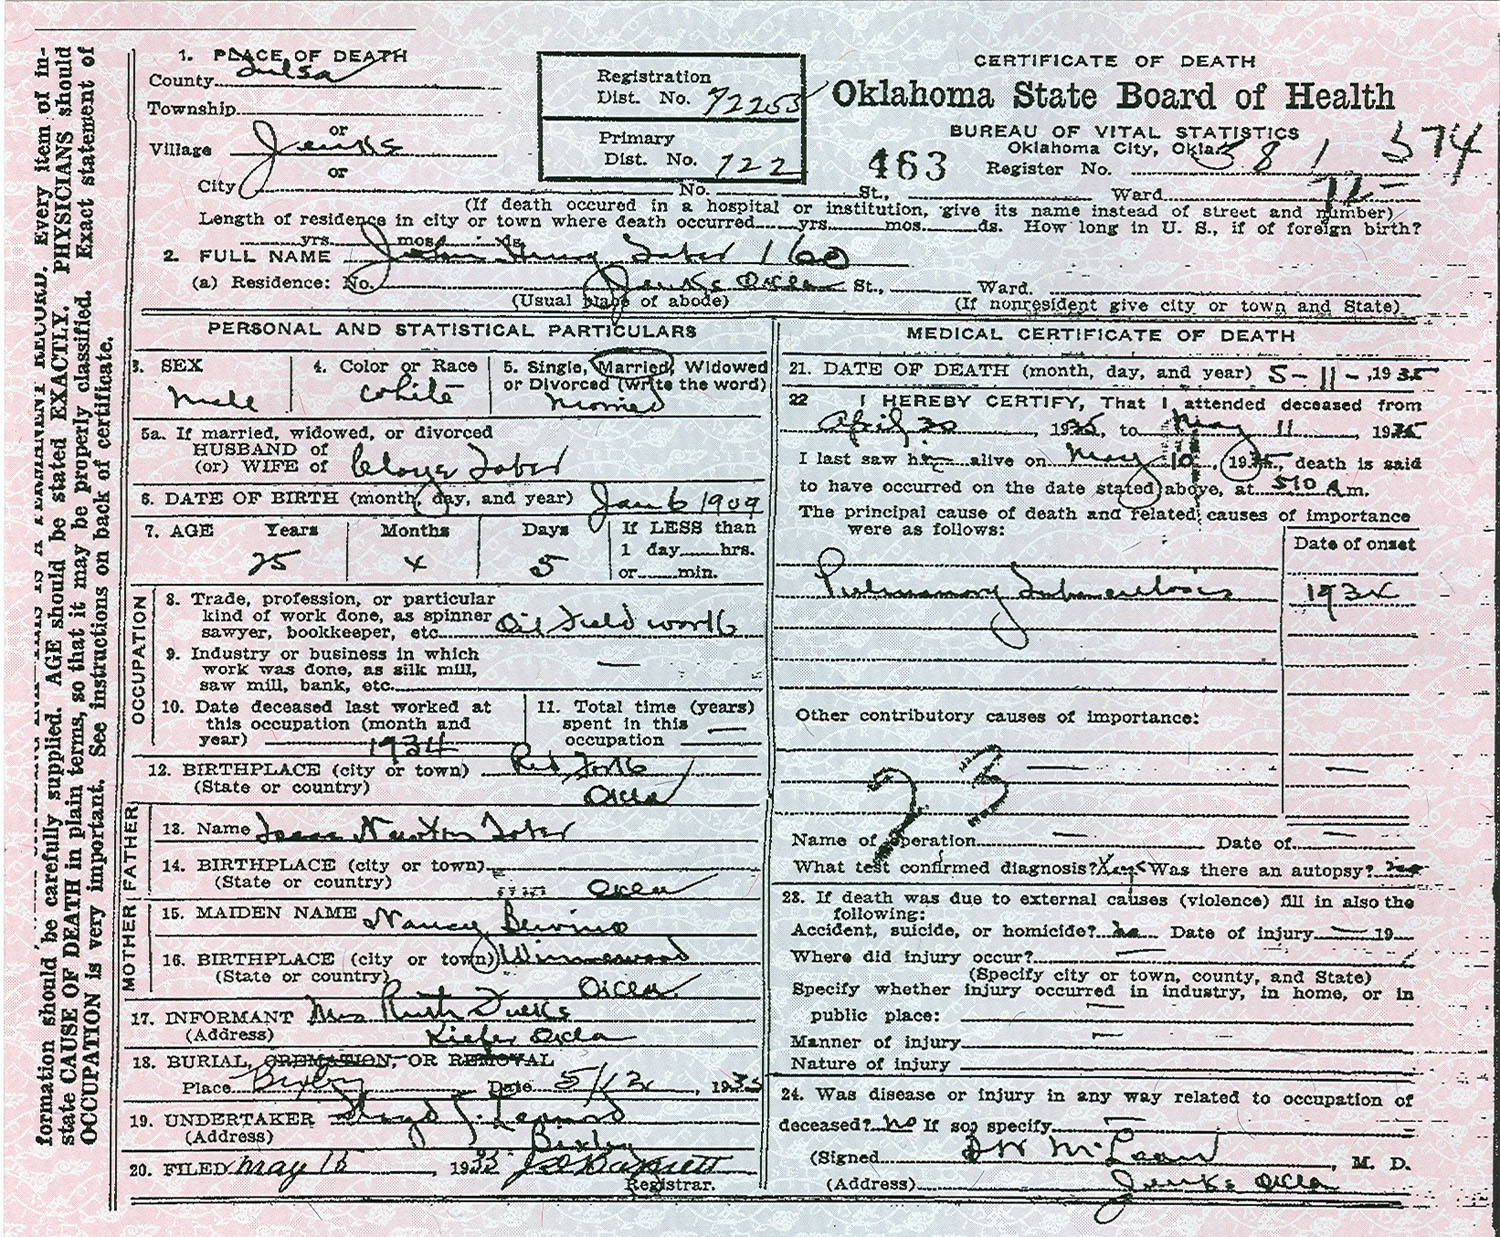 formation should be carefully supplied. AGE should be stated EXACTLY. PHYSICIANS should
state CAUSE OF DEATH in plain terms, so that it may be properly classified. Exact statement of
OCCUPATION is very important. See instructions on back of certificate.
RECORD. Every item of in-
1. PLACE OF DEATH
County Tulsa
Township
or
Village Jenks
or
City No. St., Ward
Registration
Dist. No. 72253
Primary
Dist. No. 722
CERTIFICATE OF DEATH
Oklahoma State Board of Health
BUREAU OF VITAL STATISTICS
Oklahoma City, Okla.
463
Register No. 581
574
72-
(If death occured in a hospital or institution, give its name instead of street and number)
Length of residence in city or town where death occurred yrs. mos. ds. How long in U. S., if of foreign birth?
yrs. mos. ds.
2. FULL NAME John Taber 160
(a) Residence: No. Jenks Okla St., Ward.
(Usual place of abode) (If nonresident give city or town and State)
PERSONAL AND STATISTICAL PARTICULARS
3. SEX
Male
4. Color or Race
White
5. Single, Married, Widowed
or Divorced (write the word)
Married
5a. If married, widowed, or divorced
HUSBAND of
(or) WIFE of Taber
6. DATE OF BIRTH (month, day, and year) Jan 6 1909
7. AGE Years Months Days If LESS than
1 day hrs.
or min.
25 4 5
OCCUPATION
8. Trade, profession, or particular
kind of work done, as spinner
sawyer, bookkeeper, etc. Oil Field work
9. Industry or business in which
work was done, as silk mill,
saw mill, bank, etc. —
10. Date deceased last worked at
this occupation (month and
year) 1934
11. Total time (years)
spent in this
occupation —
12. BIRTHPLACE (city or town) Red Fork
(State or country) Okla
FATHER
13. Name Isaac Newton Taber
14. BIRTHPLACE (city or town)
(State or country) Okla
MOTHER
15. MAIDEN NAME Nancy
16. BIRTHPLACE (city or town) Wynnewood
(State or country) Okla.
17. INFORMANT Mrs Ruth
(Address) Kiefer Okla
18. BURIAL, CREMATION, OR REMOVAL
Place Bixby Date 5/12, 1935
19. UNDERTAKER Floyd J. Leonard
(Address) Bixby
20. FILED May 15, 1935
Registrar.
MEDICAL CERTIFICATE OF DEATH
21. DATE OF DEATH (month, day, and year) 5-11-, 1935
22 I HEREBY CERTIFY, That I attended deceased from
April 30, 1935, to May 11, 1935
I last saw him alive on May 10, 1935, death is said
to have occurred on the date stated above, at 510 a m.
The principal cause of death and related causes of importance
were as follows:
Date of onset
Pulmonary Tuberculosis 1934
Other contributory causes of importance:
23
Name of operation Date of
What test confirmed diagnosis? Xray Was there an autopsy? no
23. If death was due to external causes (violence) fill in also the
following:
Accident, suicide, or homicide? no Date of injury — 19
Where did injury occur? —
(Specify city or town, county, and State)
Specify whether injury occurred in industry, in home, or in
public place: —
Manner of injury —
Nature of injury
24. Was disease or injury in any way related to occupation of
deceased? no If so, specify —
(Signed McLean, M. D.
(Address) Jenks Okla